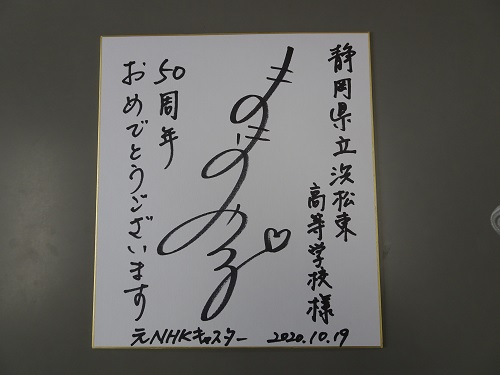 静岡県立浜松東
高等学校様
50周年
おめでとうございます
元NHKキャスター 2020.10.19